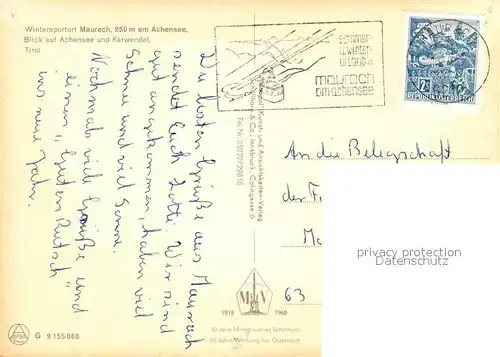 Wintersportort Maurach, 950 m am Achensee,
Blick auf Achensee und Karwendel,
Tirol
sommer-
u.winter-
urlaub in
maurach
am achensee
REPUBLIK ÖSTERREICH
Die besten Grüße aus Maurach
sendet Euch Lotti. Wir sind
gut angekommen, haben viel
Schnee und viel Sonne.
Nochmals viele Grüße und
einen "Guten Rutsch"
ins neue Jahr.
Kunst- und Ansichtskarten-Verlag
& Co., Innsbruck,
Tel. Nr. 05222/26816
An die Belegschaft
der F
Ma
63
privacy protection
Datenschutz
1918 1968
50 Jahre
50 Jahre Werbung für Österreich
G 9 155 088